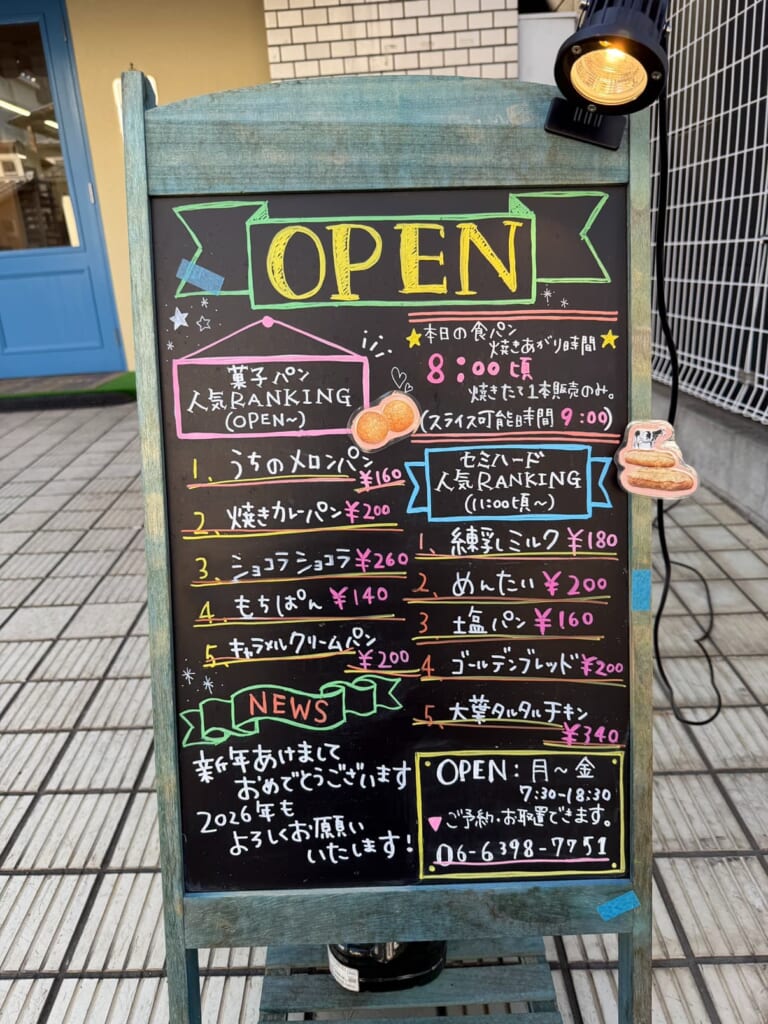 OPEN
本日の食パン
焼きあがり時間
8:00頃
焼きたて1本販売のみ。
(スライス可能時間 9:00)
菓子パン
人気RANKING
(OPEN~)
1. うちのメロンパン
¥160
2. 焼きカレーパン ¥200
3. ショコラショコラ ¥260
4. もちぱん ¥140
5. キャラメルクリームパン
¥200
セミハード
人気RANKING
(11:00頃~)
1. 練乳ミルク ¥180
2. めんたい ¥200
3 塩パン ¥160
4 ゴールデンブレッド ¥200
5. 大葉タルタルチキン
¥340
NEWS
新年あけまして
おめでとうございます
2026年も
よろしくお願い
いたします!
OPEN:月~金
7:30-18:30
ご予約・お取置できます。
06-6398-7751